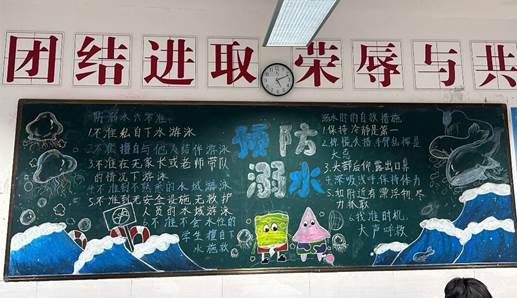 团结进取 荣辱与共
预防
溺水
防溺水六不准
1.不准私自下水游泳
2.不准擅自与他人结伴游泳
3.不准在无家长或老师带队
的情况下游泳
4.不准到不熟悉的水域游泳
5.不准到无安全设施、无救护
人员的水域游泳
6.不准不会水性的
学生擅自下
水施救
溺水时的自救措施
1.保持冷静是第一
大忌
3.头部后仰,露出口鼻
4.深吸浅呼保持体力
5.如附近有漂浮物尽
力抓取
6.找准时机,
大声呼救